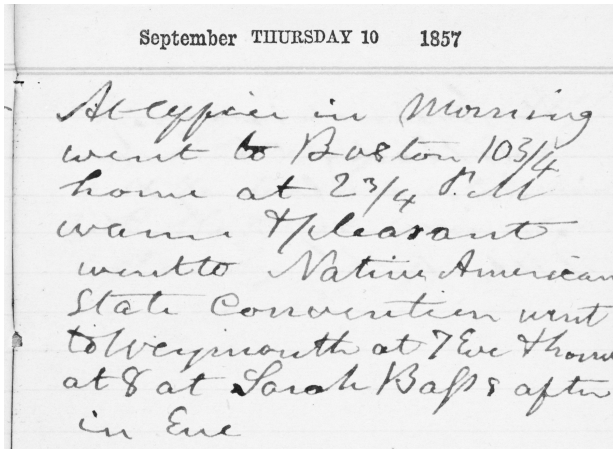 September THURSDAY 10 1857
At office in Morning
went to Boston 10 3/4
home at 2 3/4 P.M
warm & pleasant
went to Native American
State Convention went
to Weymouth at 7 Eve & home
at 8 at Sarah Bass's after
in Eve